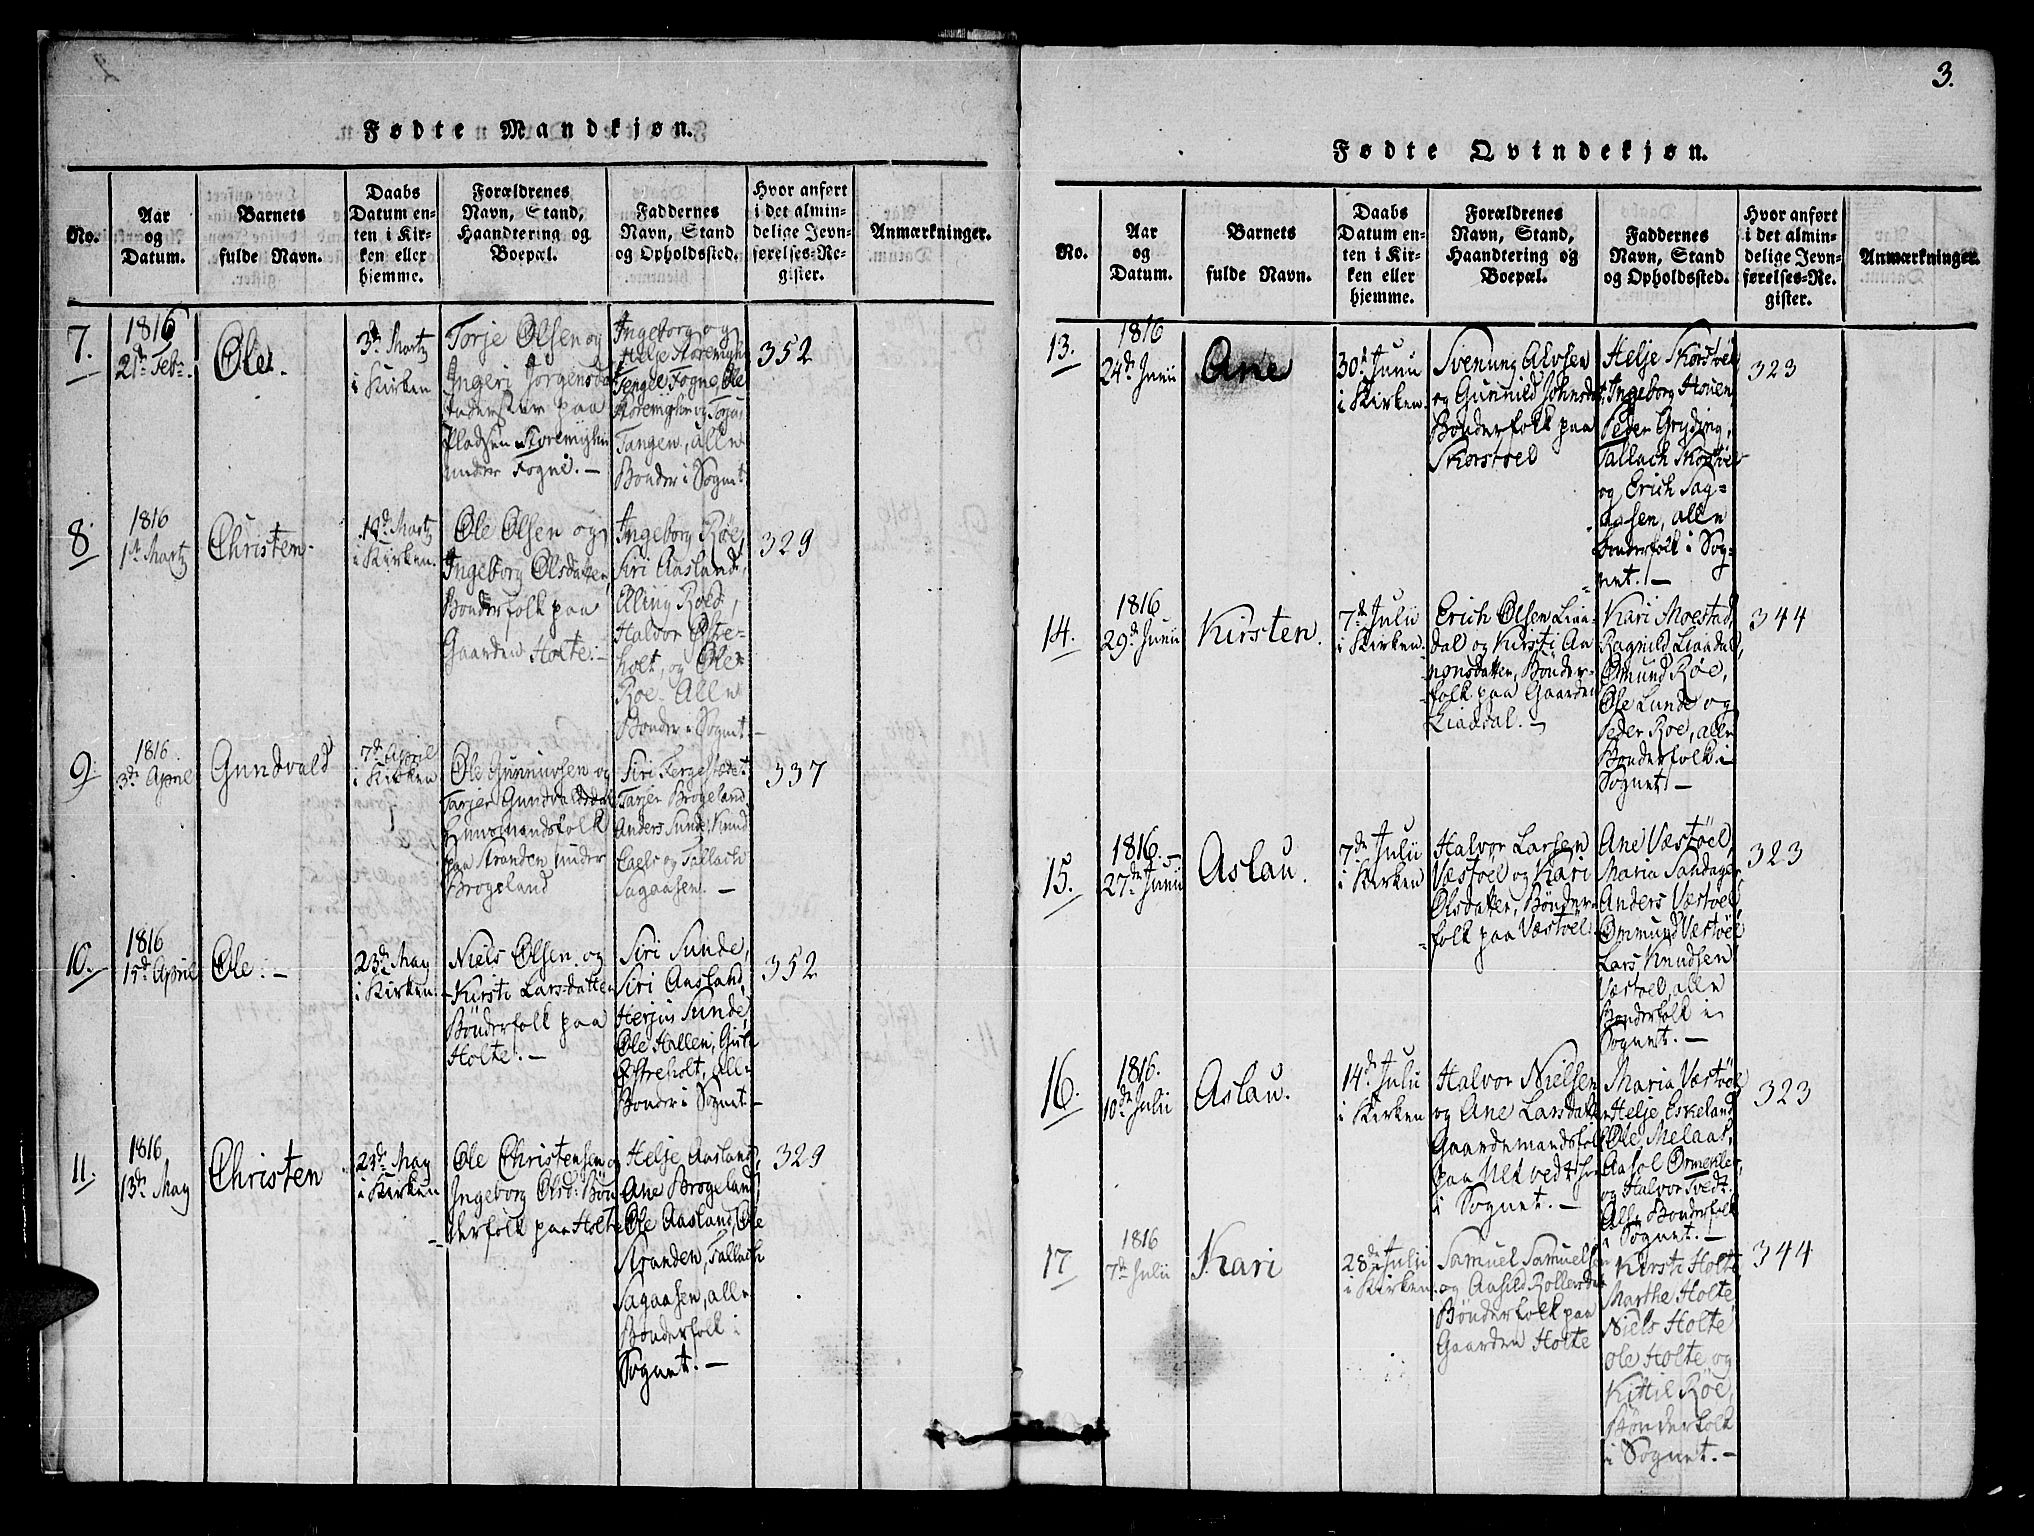 3.
Fødte Mandkjøn.
No.
Aar
og
Datum.
Barnets
fulde Navn.
Daabs
Datum en-
ten i Kir-
ken eller
hjemme.
Forældrenes
Navn, Stand,
Haandtering og
Boepæl.
Faddernes
Navn, Stand
og Opholdssted.
Hvor anført
i det almin-
delige Jevn-
førelses-Re-
gister.
Anmærkninger.
7.
1816
21de Febr.
Ole.
3de Martz
i Kirken
Torje Olsen og
Ingeri Jørgensd
paa
Pladsen
under Fogne. —
Ingeborg og
Helje
Fogne, Ole
Tangen, alle
Bønder i Sognet
352
8
1816
1ste Martz
Christen.
10de Martz
i Kirken.
Ole Olsen og
Ingeborg Olsdatter,
Bønderfolk paa
Gaarden Holte. —
Ingeborg Røe,
Siri Aasland,
Elling Roed,
Halvor Østre-
holt, og Ole
Roe. Alle
Bønder i Sognet —
329
9.
1816.
3de April
Gundvald
7de April
i Kirken
Ole Gunnuvsen og
Tarjer Gundvaldsdat
Huusmandsfolk
paa Stranden under
Brogeland
Siri
Tarjer Brogeland
Anders Sunde, Knud
og Tallach
Sagaasen. —
337
10.
1816
15de April
Ole. —
23de May
i Kirken.
Niels Olsen og
Kirsti Larsdatter
Bønderfolk paa
Holte. —
Siri Sunde,
Siri Aasland,
Herjus Sunde,
Ole Hallen,
Østreholt, alle
Bønder i Sognet —
352
11.
1816
13de May
Christen
23de May
i Kirken
Ole Christensen og
Ingeborg Olsd: Bøn
derfolk paa Holte
Helje Aasland,
Ane Brogeland,
Ole Aasland, Ole
Stranden, Tallach
Sagaasen, alle
Bønderfolk i
Sognet. —
329
Fødte Qvindekjøn.
No.
Aar
og
Datum.
Barnets
fulde Navn.
Daabs
Datum en-
ten i Kir-
ken eller
hjemme.
Forældrenes
Navn, Stand,
Haandtering og
Boepæl.
Faddernes
Navn, Stand
og Opholdssted.
Hvor anført
i det almin-
delige Jevn-
førelses-Re-
gister.
Anmærkninger.
13.
1816
24de Junii
Ane
30te Junii
i Kirken.
Svenung Alvsen
og Gunnild Johnsd
Bønderfolk paa
Skorstøel
Helje Skorstøel
Ingeborg
Peder Gryding,
Tallach Skorstøel
og Erich Sag-
aasen, alle
Bønderfolk i Sog-
net. —
323
14.
1816
29de Junii
Kirsten.
7de Julii
i Kirken.
Erich Olsen Liaa-
dal og Kirsti Aa
nonsdatter, Bønder-
folk paa Gaarden
Liaadal. —
Kari Moestad,
Ragnild Liaadal,
Omund Røe,
Ole Lunde og
Peder Roe, alle
Bønderfolk i
Sognet —
344
15.
1816. —
27de Junii
Aslau.
7de Julii
i Kirken
Halvor Larsen
Væstøel og Kari
Olsdatter, Bønder-
folk paa Væstøel
Ane Væstøel,
Maria Sandager,
Anders Væstøel
Ommund Væstøel
Lars Knudsen
Væstøel, alle
Bønderfolk i
Sognet. —
323
16.
1816.
10de Julii
Aslau.
14de Julii
i Kirken
Halvor Nielsen
og Ane Larsdatter
Gaardemandsfolk
paa
i Sognet. —
Maria Væstøel
Helje Eskeland,
Ole Melaas,
og Halvor Tvedt.
Alle Bønderfolk
i Sognet. —
323
17
1816
7de Julii
Kari
28de Julii
i Kirken
Samuel Samuels
og Aasild
Bønderfolk paa
Gaarden Holte
Kirsti Holte
Marthe Holte
Niels Holte
Ole Holte, og
Kittil Røe,
Bønderfolk
i Sognet. —
344